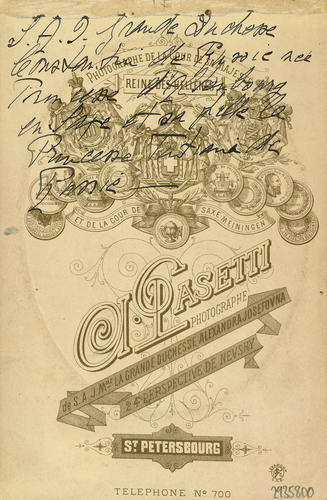 S. A. I. Grande Duchesse
Constantin de Russie née
PHOTOGRAPHE DE LA COUR
REINE DES HELLENES
en Saxe et sa fille la
Princesse Tatiana de
Russie
ET DE LA COUR DE SAXE MEININGEN
I. PASETTI
PHOTOGRAPHE
de S. A. J. Mme LA GRANDE DUCHESSE ALEXANDRA JOSEFOVNA
24 PERSPECTIVE DE NEVSKY
ST PETERSBOURG
TELEPHONE No 700
2935800